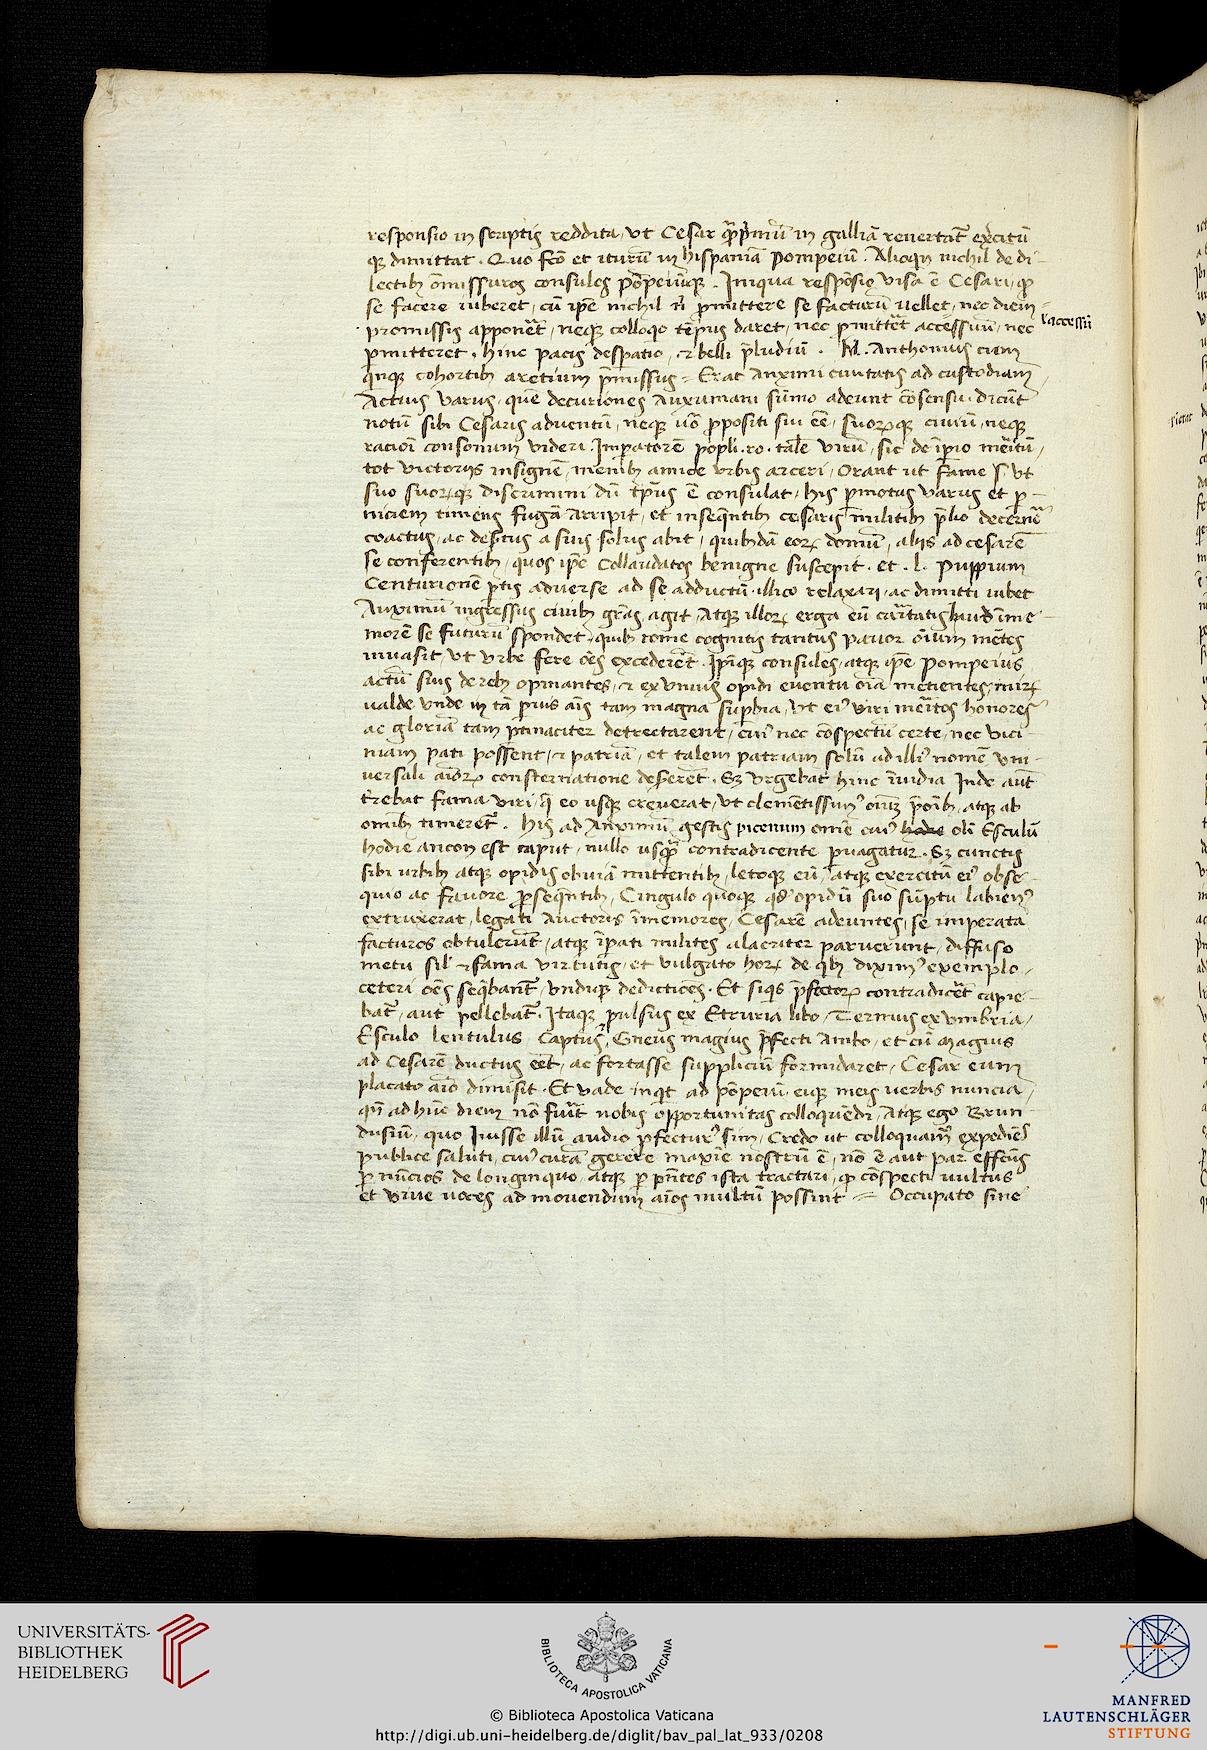 responsio in scriptis reddita, ut Cesar q̃pͥmũ in galliã reuertat᷑ exͬcitũ
qꝫ dimittat . Quo fcõ et iturũ in hispaniã Pompeiũ . Alioqͥn nichil de di-
lectibꝫ õmissuros consules põpeiũqꝫ . Iniqua respõsio visa ẽ Cesari, qͦ
se facere iuberet, cũ ip̃e nichil nͥ ꝓmittere se facturũ uellet, nec diem
promissis apponẽt, neqꝫ colloqͦ tẽpus daret, nec ꝑmittẽt accessum, nec
laccessũ
ꝑmitteret . hinc pacis despatio, ⁊ belli p̃ludiũ . M . Anthonius cum
qͥnqꝫ cohortibꝫ aretium p̃missus = Erat Auximi ciuitatis ad custodiam
Actius varus, quẽ decuriones Auxumani sũmo adeunt cõsensu . dicũt
notũ sibi Cesaris aduentũ, neqꝫ uͦ ꝓpositi sui eẽ, suorꝫqꝫ ciuiũ, neqꝫ
racioĩ consonum videri . Imperatorẽ popli . ro . talẽ virũ, sic de ĩpio meͬitũ,
tot victorijs insignẽ, menibꝫ amice urbis arceri, Orant ut fame ut
suo suorꝫqꝫ discrimini dũ tp̃us ẽ consulat, his ꝑmotus varus et ꝑ-
niciem timens fugã arripit, et insequẽtibꝫ cesaris militibꝫ p̃lio decernẽ
coactus, ac desͬtus a suis solus abit, quibusdã eorꝫ domũ, alijs ad cesarẽ
se conferentibꝫ, quos ip̃e Collaudatos benigne suscepit . et . l . Puppium
Centurionẽ ꝑtis aduerse ad se adductũ . illico relaxari, ac dimitti iubet
Auximũ ingressus ciuibꝫ grãs agit, atqꝫ illorꝫ erga eũ caritatis haud ĩme
morẽ se futurũ spondet, quibꝫ rome cognitis tantus pauor oĩum mẽtes
inuasit, ut urbe fere oẽs excederẽt . Ip̃iqꝫ consules, atqꝫ ip̃e Pompeius
actũ suis de rebꝫ opinantes, ⁊ ex unius opidi euentu oĩa metientes, mirꝫ
ualde unde in tã pͥuis aĩs tam magna suꝑbia, ut eiꝰ viri meͬitos honores
ac gloriã tam ꝑtinaciter detrectarent, cuiꝰ nec cõspectũ certe, nec vici-
niam pati possent, ⁊ patriã, et talem patriam solũ ad illiꝰ nomẽ uni-
uersali aĩorꝫ consternatione desererẽt . Sꝫ urgebat hinc ĩuidia inde aũt
tͬrebat fama viri, q̃ eo usqꝫ creuerat, ut clementissimꝰ oĩm p̃cibꝫ atqꝫ ab
omĩbꝫ timeret᷑ . His ad Auximũ gestis picenum omẽ cuiꝰ hodie olĩ Esculũ
hodie ancon est caput, nullo usqꝫ contradicente ꝑuagatur . Sꝫ cunctis
sibi urbibꝫ atqꝫ opidis obuiã mittentibꝫ, letoqꝫ eũ, atqꝫ exercitũ eiꝰ obse-
quio ac fauore ꝓsequẽtibꝫ, Cingulo quoqꝫ qd opidũ suo sũptu labienꝰ
extruxerat, legati auctoris ĩmemores, Cesarẽ adeuntes, se imperata
facturos obtulerũt, atqꝫ ĩpati milites alacriter paruerunt, diffuso
metu sil ⁊ fama virtutis, et vulgato horꝫ de qͥbꝫ diximꝰ exemplo,
ceteri oẽs sequebant᷑, undiqꝫ dediciões . Et siqͥs p̃fectorꝫ contradicẽt capie-
bat᷑, aut pellebat᷑ . Itaqꝫ pulsus ex Etruria libo, Termus ex umbria,
Esculo lentulus Captus, Gneus magius p̃fecti ambo, et cũ magius
ad Cesarẽ ductus eẽt, ac fortasse suppliciũ formidaret, Cesar eum
placato aĩo dimisit . Et uade inqͥt ad põpeiũ eiqꝫ meis uerbis nuncia,
qñ ad hũc diem nõ fuit nobis opportunitas colloquẽdi, atqꝫ ego Brun-
dusiũ, quo iuisse illũ audio ꝓfecturꝰ sim, Credo ut colloquamꝰ expediẽs
publice saluti, cuiꝰ curã gerere maxĩe nostrũ ẽ, nõ ẽ aut par effectus
ꝑ nũcios de longinquo, atqꝫ ꝑ pñtes ista tractari, qͦ cõspecti uultus
et viue uoces ad mouendum aĩos multũ possint = Occupato sine
UNIVERSITÄTS-
BIBLIOTHEK
HEIDELBERG
BIBLIOTECA APOSTOLICA VATICANA
© Biblioteca Apostolica Vaticana
http://digi.ub.uni-heidelberg.de/diglit/bav_pal_lat_933/0208
MANFRED
LAUTENSCHLÄGER
STIFTUNG